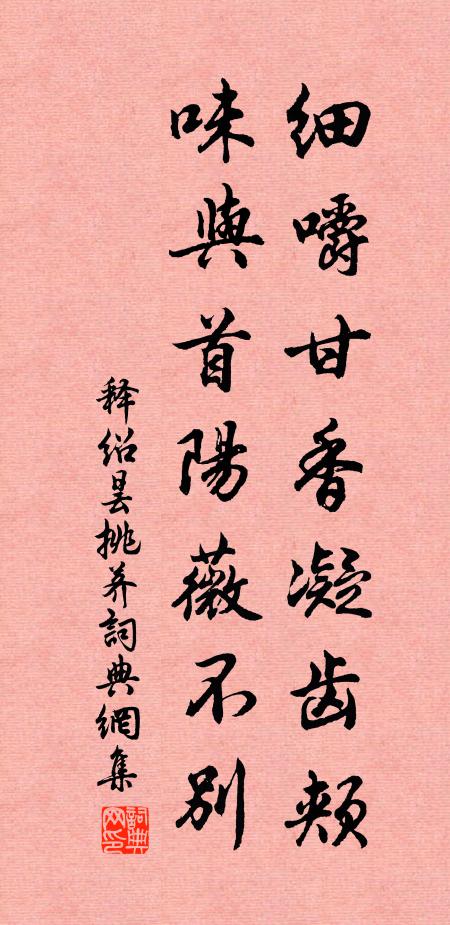 细嚼甘香凝齿颊
味與首陽薇不别
释绍昙挑荠詞典網集
詞典网印